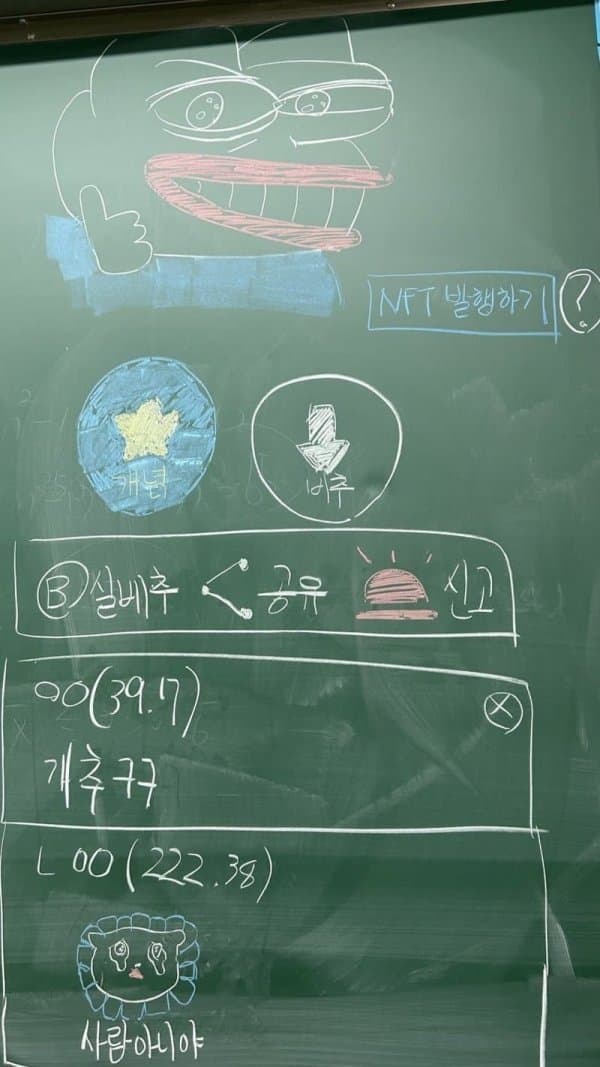 NFT 발행하기 ?
개념 비추
B 실베추 공유 신고
ㅇㅇ(39.17) X
개추구구
ㄴ ㅇㅇ(222.38)
사람아니야